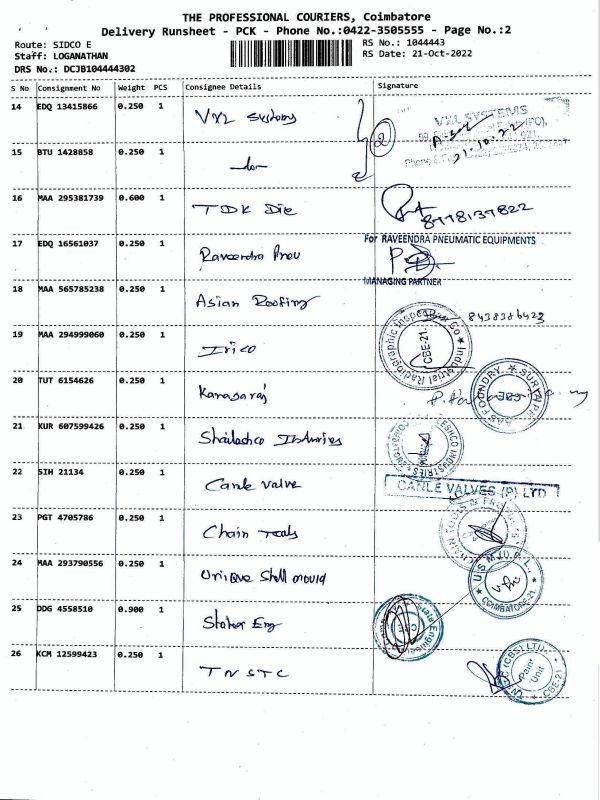 THE PROFESSIONAL COURIERS, Coimbatore
Delivery Runsheet - PCK - Phone No.:0422-3505555 - Page No.:2
Route: SIDCO E
RS No.: 1044443
Staff: LOGANATHAN
RS Date: 21-Oct-2022
DRS No.: DCJB104444302
S No Consignment No Weight PCS Consignee Details Signature
14 EDQ 13415866 0.250 1 VXL Systems 2 VXL SYSTEMS
21.10.22
15 BTU 1428858 0.250 1 -do-
16 MAA 295381739 0.600 1 TDK Die 8778137822
17 EDQ 16561037 0.250 1 Raveendra Pneu For RAVEENDRA PNEUMATIC EQUIPMENTS
MANAGING PARTNER
18 MAA 565785238 0.250 1 Asian Roofing 8438386423
19 MAA 294999060 0.250 1 Irico Industrial Radiographic Inspection Co CBE-21.
20 TUT 6154626 0.250 1 Kanagaraj
21 KUR 607599426 0.250 1 Shaileshco Industries
22 SIH 21134 0.250 1 Canle valve CANLE VALVES (P) LTD
23 PGT 4705786 0.250 1 Chain Tools
24 MAA 293790556 0.250 1 Unique Shell mould COIMBATORE-21
25 DDG 4558510 0.900 1 Stater Eng CBE
26 KCM 12599423 0.250 1 TNSTC (CBS) LTD. Paint Unit CBE-21